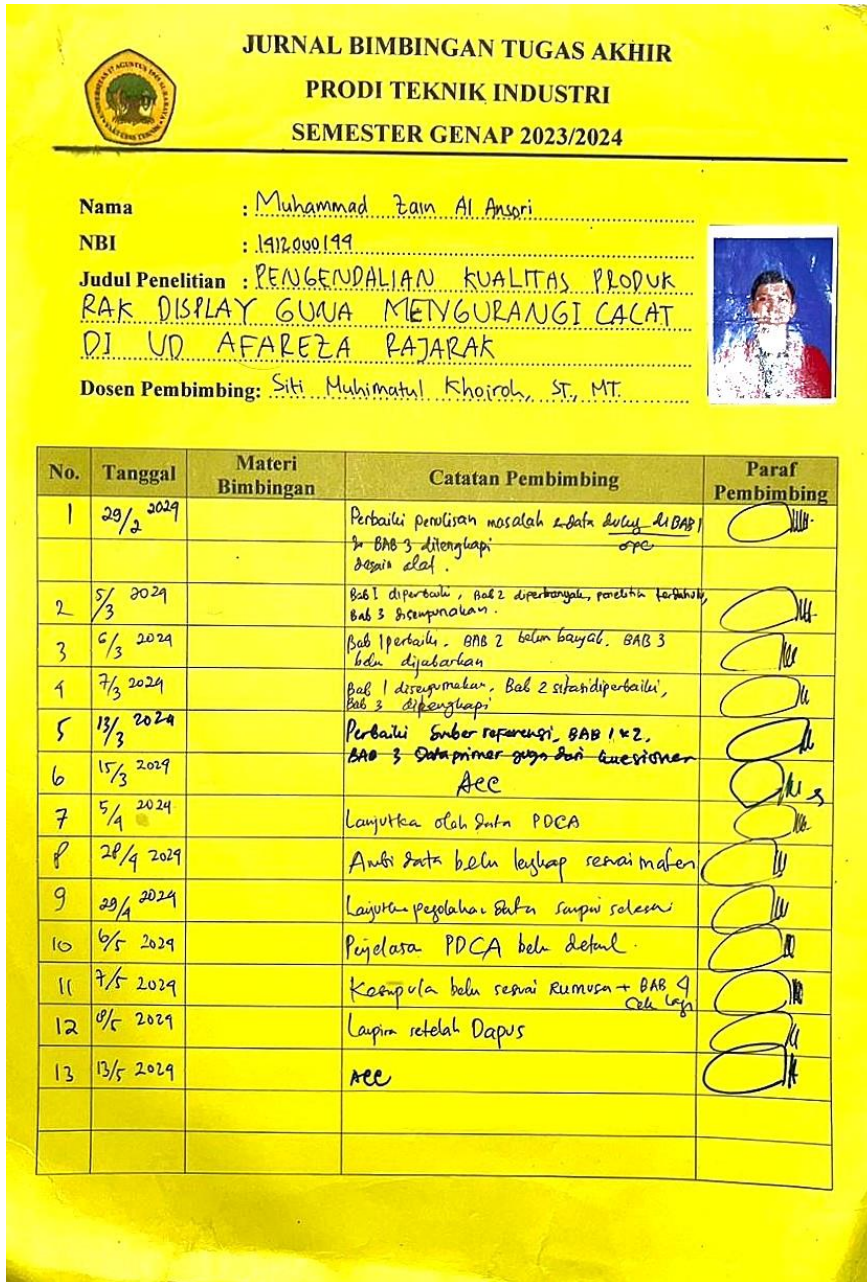 JURNAL BIMBINGAN TUGAS AKHIR
PRODI TEKNIK INDUSTRI
SEMESTER GENAP 2023/2024
Nama : Muhammad Zain Al Ansori
NBI : 1912000199
Judul Penelitian : PENGENDALIAN KUALITAS PRODUK
RAK DISPLAY GUNA MENGURANGI CACAT
DI UD AFAREZA RAJARAK
Dosen Pembimbing: Siti Muhimatul Khoiroh, ST., MT.
No. Tanggal Materi Bimbingan Catatan Pembimbing Paraf Pembimbing
1 29/2 2024 Perbaiki penulisan masalah data di BAB 1
BAB 3 dilengkapi
desain alat.
2 5/3 2024 Bab 1 diperbaiki, Bab 2 diperbanyak, penelitian terdahulu,
Bab 3 disempurnakan.
3 6/3 2024 Bab 1 perbaiki. BAB 2 belum banyak. BAB 3
belu dijabarkan
4 7/3 2024 Bab 1 Bab 2 diperbaiki,
Bab 3 dilengkapi
5 13/3 2024 Perbaiki Sumber referensi, BAB 1 & 2.
BAB 3 Data primer dari quesioner
6 15/3 2024 Acc
7 5/4 2024 Lanjutka olah data PDCA
8 28/4 2024 Ambi data belu lengkap sesuai materi
9 29/4 2024 data sampai selesai
10 6/5 2024 Penjelasa PDCA belu detail.
11 7/5 2024 belu sesuai Rumusa + BAB 4
Cek lagi
12 8/5 2024 Lampira setelah Dapus
13 13/5 2024 Acc